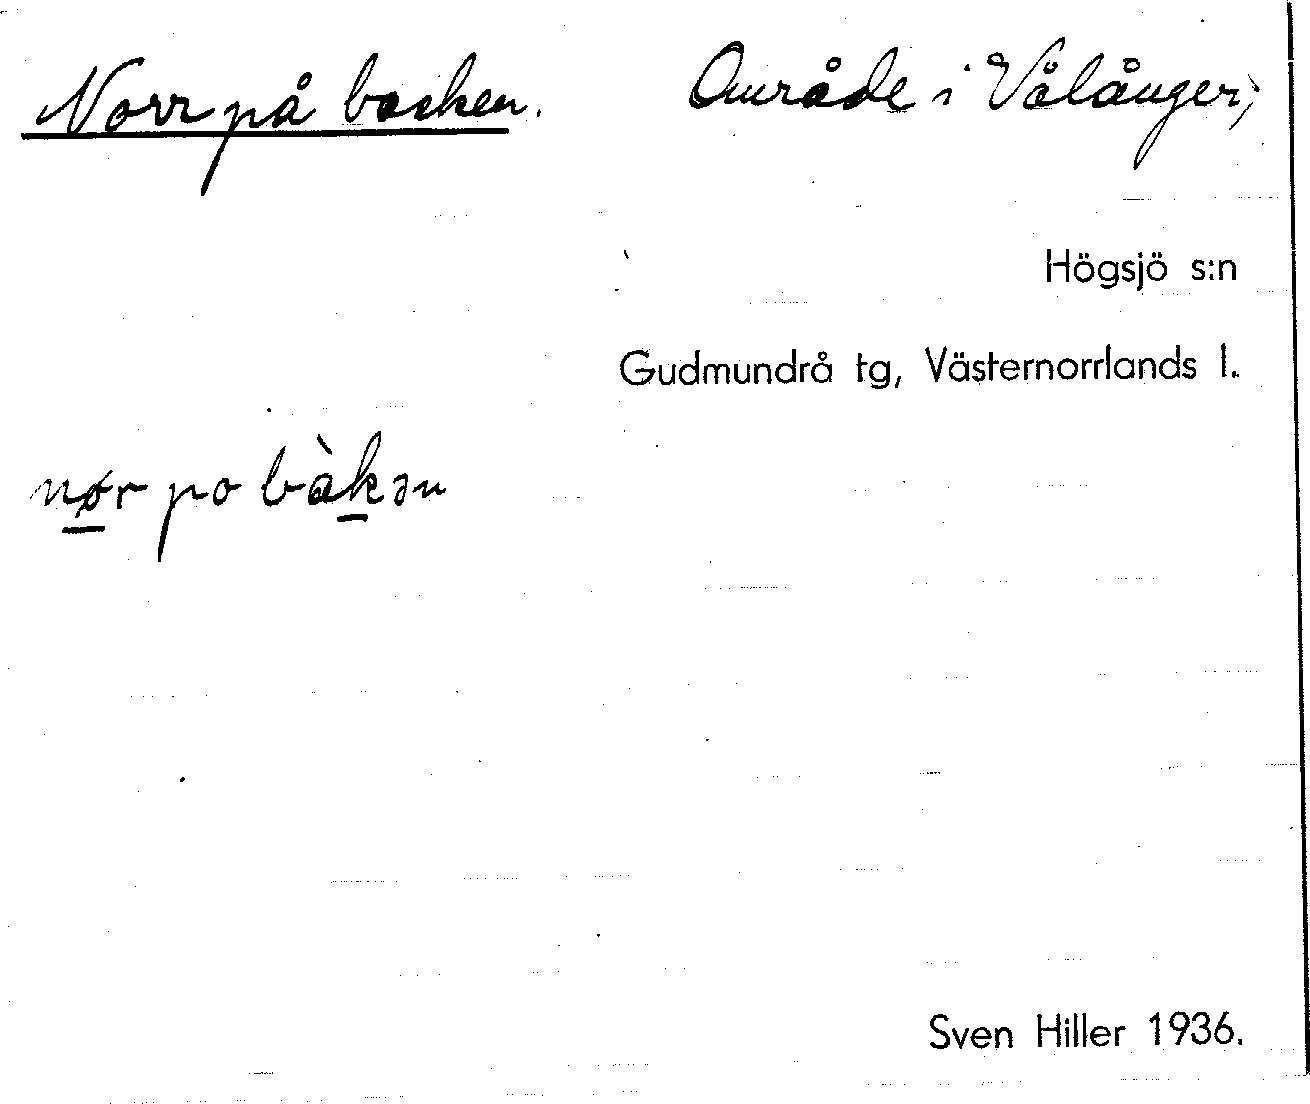 Norr på backen. Område i Vålånger,
Högsjö s:n
Gudmundrå tg, Västernorrlands l.
nør po bàkən
Sven Hiller 1936.